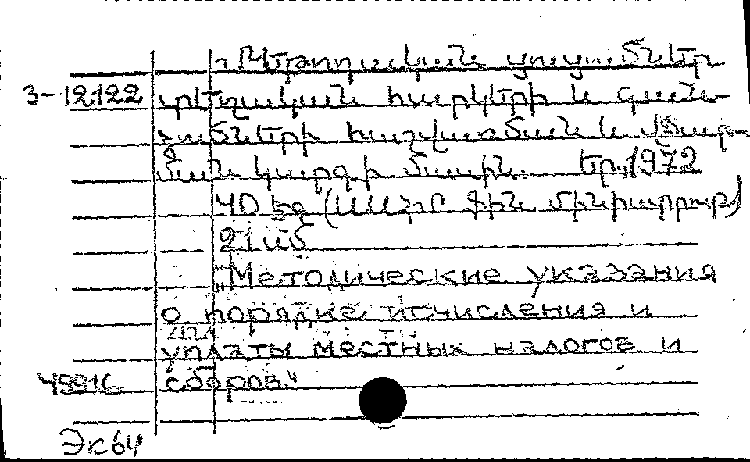 „Մեթոդական ցուցումներ
3-12122 տեղական հարկերի և գան-
ձումների հաշվառման և վճար-
ման կարգի մասին". Եր., 1972
40 էջ (ՍՍՀՄ Ֆին. մինիստր.)
21 սմ
„Методические указания
о порядке исчисления и
уплаты местных налогов и
сборов"
45916
Экз 64